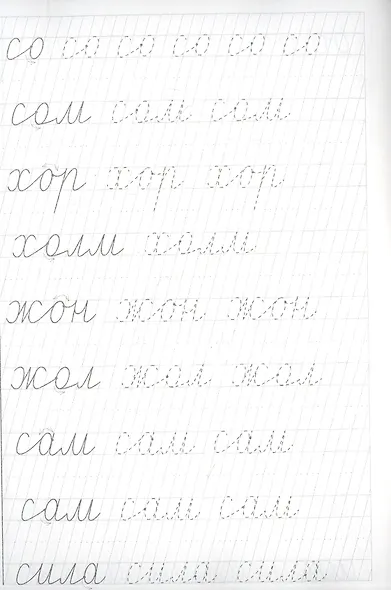 со со со со со со
сом сом сом
хор хор хор
холм холм
жон жон жон
жол жол жол
сам сам сам
сам сам сам
сила сила сила